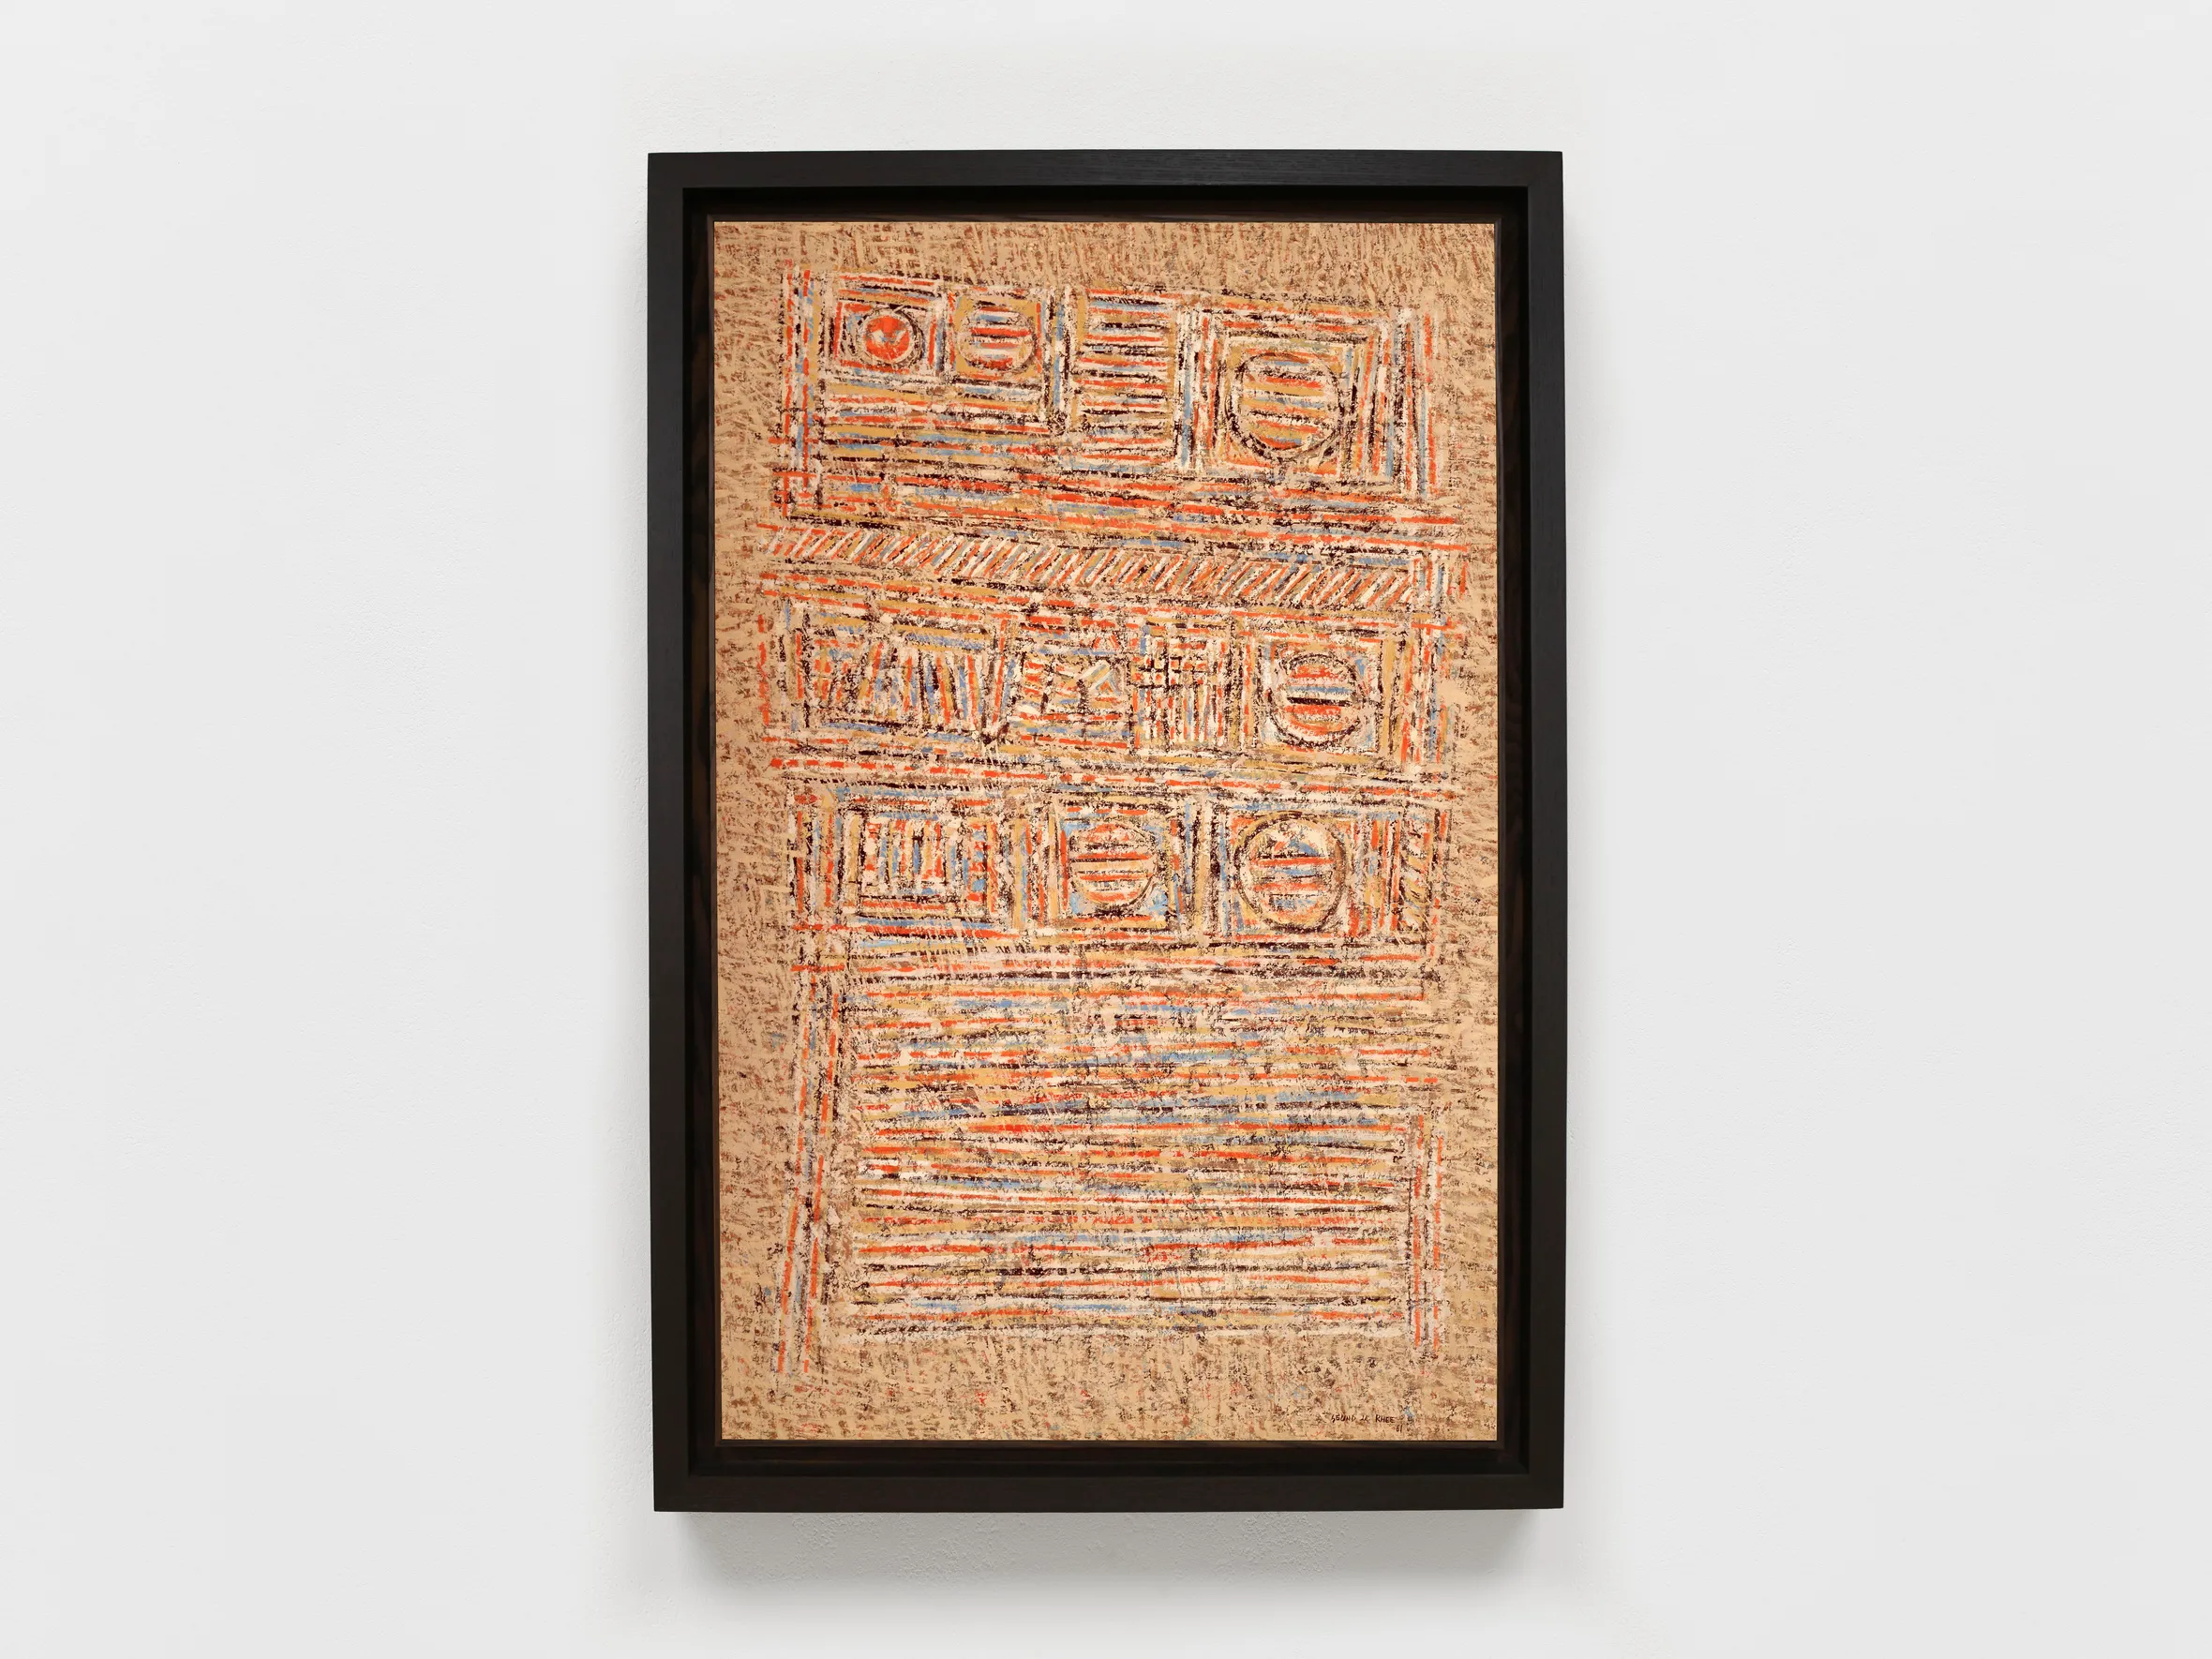 SEUND JA RHEE